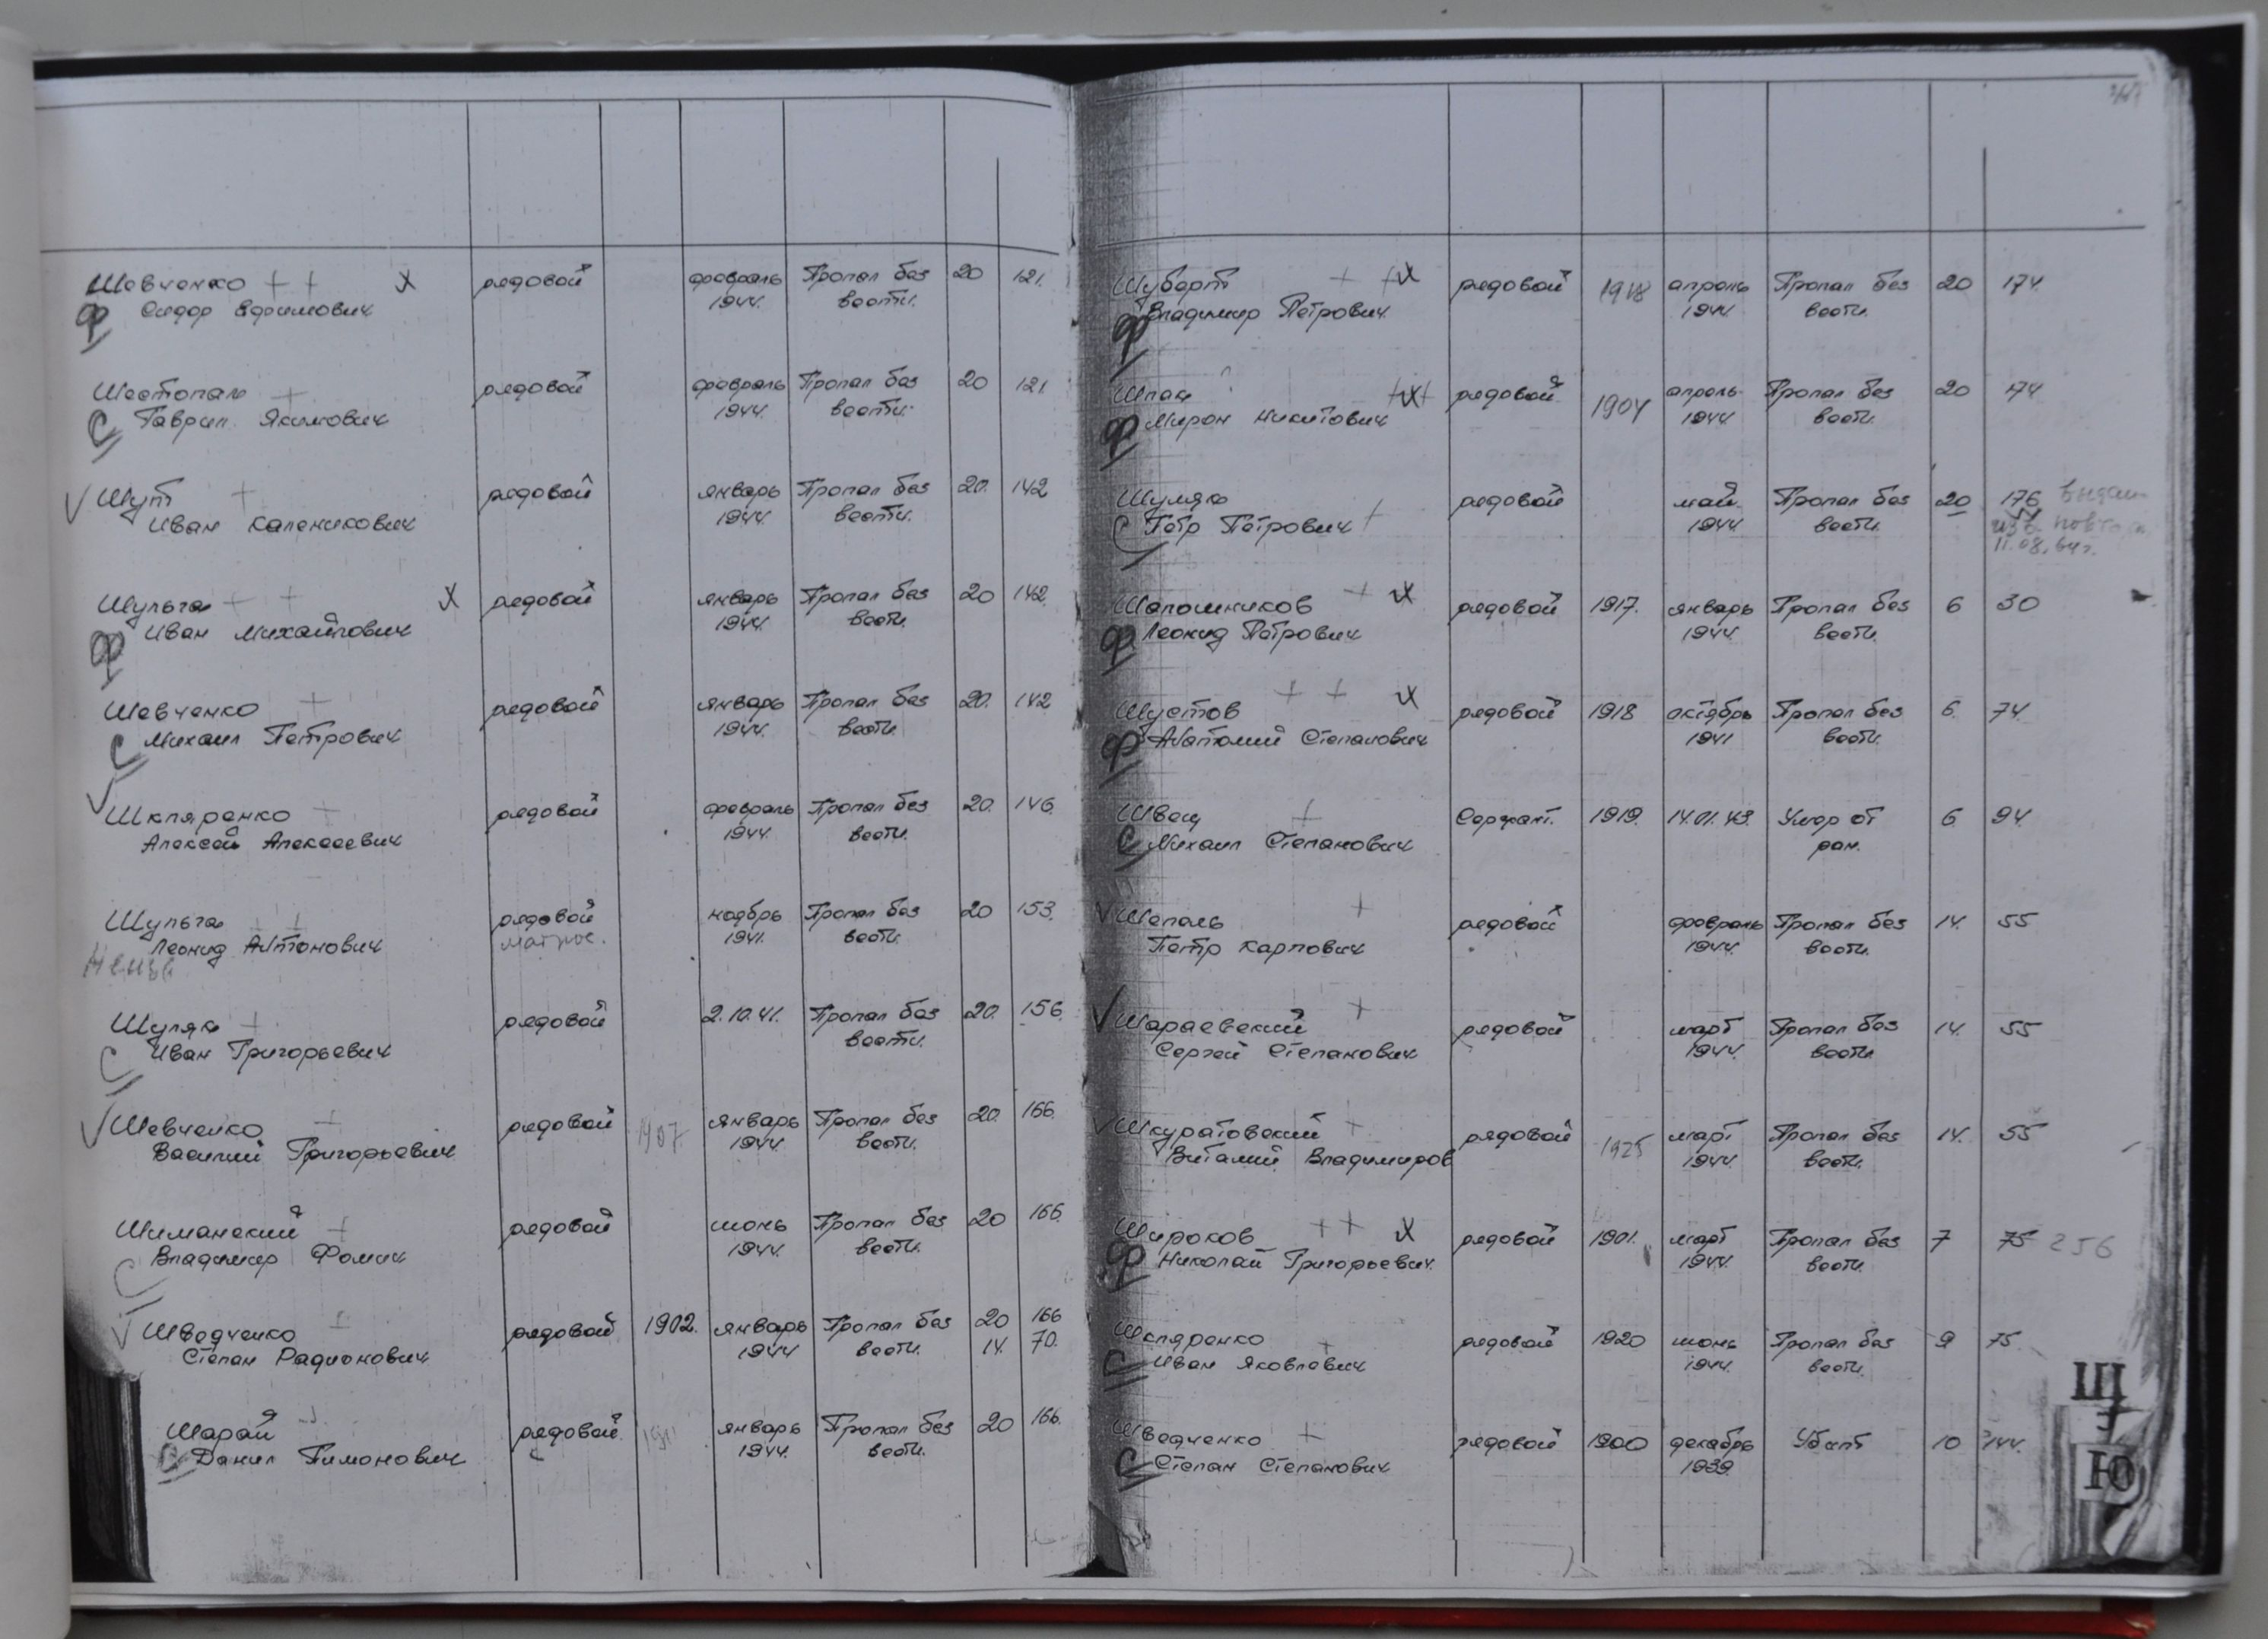 Шевченко ++ х рядовой февраль Пропал без 20 121.
ф Сидор Ефимович 1944. вести.
Шестопал + рядовой февраль Пропал без 20 121
С Гаврил Якимович 1944. вести.
√ Шут + рядовой январь Пропал без 20. 142
Иван Каленикович 1944. вести.
Шульга + + х рядовой январь Пропал без 20 142.
ф Иван Михайлович 1944. вести.
Шевченко + рядовой январь Пропал без 20. 142
С Михаил Петрович 1944. вести.
√ Шкляренко + рядовой февраль Пропал без 20. 146.
Алексей Алексеевич 1944. вести.
Шульга + + рядовой ноябрь Пропал без 20 153.
Леонид Антонович матрос. 1941. вести.
Шуляк + рядовой 2.10.41. Пропал без 20. 156.
С Иван Григорьевич вести.
√ Шевченко + рядовой 1907 январь Пропал без 20. 166.
Василий Григорьевич 1944. вести.
Шиманский + рядовой июнь Пропал без 20 166.
С Владимир Фомич 1944. вести.
√ Шведченко + рядовой 1902. январь Пропал без 20 166
Степан Радионович 1944 вести. 14. 70.
Шарай рядовой январь Пропал без 20 166.
С Данил Тимонович 1944. вести.
Шуберт + + х рядовой 1918 апрель Пропал без 20 174.
ф Владимир Петрович 1944 вести.
Шпак + х + рядовой 1904 апрель Пропал без 20 174
ф Мирон Никитович 1944 вести.
Шуляк рядовой май Пропал без 20 176
С Петр Петрович + 1944 вести.
11.08.64г.
Шапошников + х рядовой 1917. январь Пропал без 6 30
ф Леонид Петрович 1944. вести.
Шустов + + х рядовой 1918 октябрь Пропал без 6. 74.
ф Анатолий Степанович 1941 вести.
Швец + Сержант. 1919. 14.01.43. Умер от 6. 94.
С Михаил Степанович ран.
√ Шепель + рядовой февраль Пропал без 14. 55
Петр Карпович 1944. вести.
√ Шараевский + рядовой март Пропал без 14. 55
Сергей Степанович 1944. вести
√ Шкуратовский + рядовой 1925 март Пропал без 14. 55
Виталий Владимиров 1944. вести.
Широков + + х рядовой 1901. март Пропал без 7 75 256
ф Николай Григорьевич. 1944. вести.
Шкляренко + рядовой 1920 июнь Пропал без 9 75.
С Иван Яковлевич 1944. вести.
Шведченко + рядовой 1900 декабрь Убит 10 144.
С Степан Степанович 1939.
Щ
Э
Ю